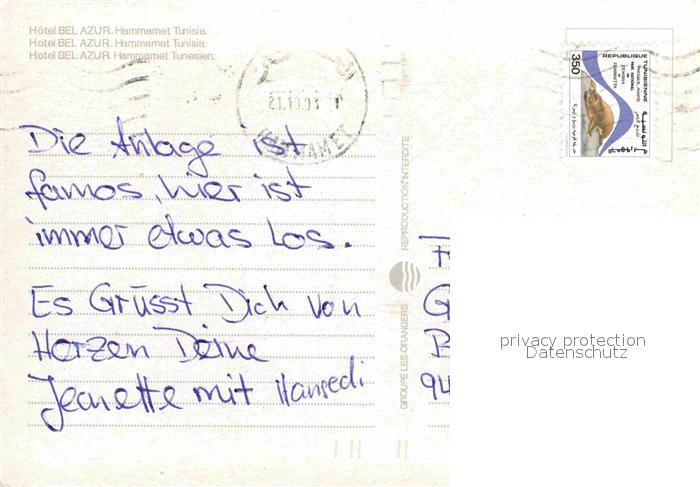 Hôtel BEL AZUR. Hammamet Tunisie.
Hotel BEL AZUR. Hammamet Tunisia.
Hotel BEL AZUR. Hammamet Tunesien.
21.10.93
HAMMAMET
Die Anlage ist
famos, hier ist
immer etwas los.
Es Grüsst Dich von
Herzen Deine
Jeanette mit Hansedi
REPRODUCTION INTERDITE
GROUPE LES ORANGERS
350
REPUBLIQUE TUNISIENNE
PHOQUE MOINE
PARC NATIONAL
ZEMBRA
ZEMBRETTA
G
94
privacy protection
Datenschutz